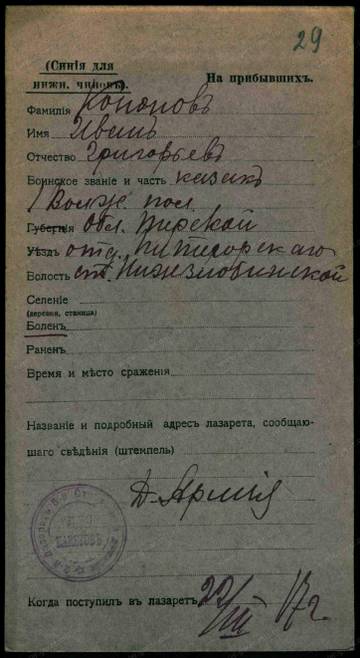 29
(Синія для
нижн. чиновъ).
На прибывшихъ.
Фамилія Кононовъ
Имя Иванъ
Отчество Григорьевъ
Воинское званіе и часть казакъ
1 Волж. пол.
Губернія Обл. Терской
Уѣздъ отд. Пятигорскаго
Волость ст. Нижезлобинской
Селеніе
(деревня, станица)
Боленъ
Раненъ
Время и мѣсто сраженія
Названіе и подробный адресъ лазарета, сообщаю-
щаго свѣдѣнія (штемпель)
Д. Армія
Когда поступилъ въ лазаретъ 22/III 17 г.